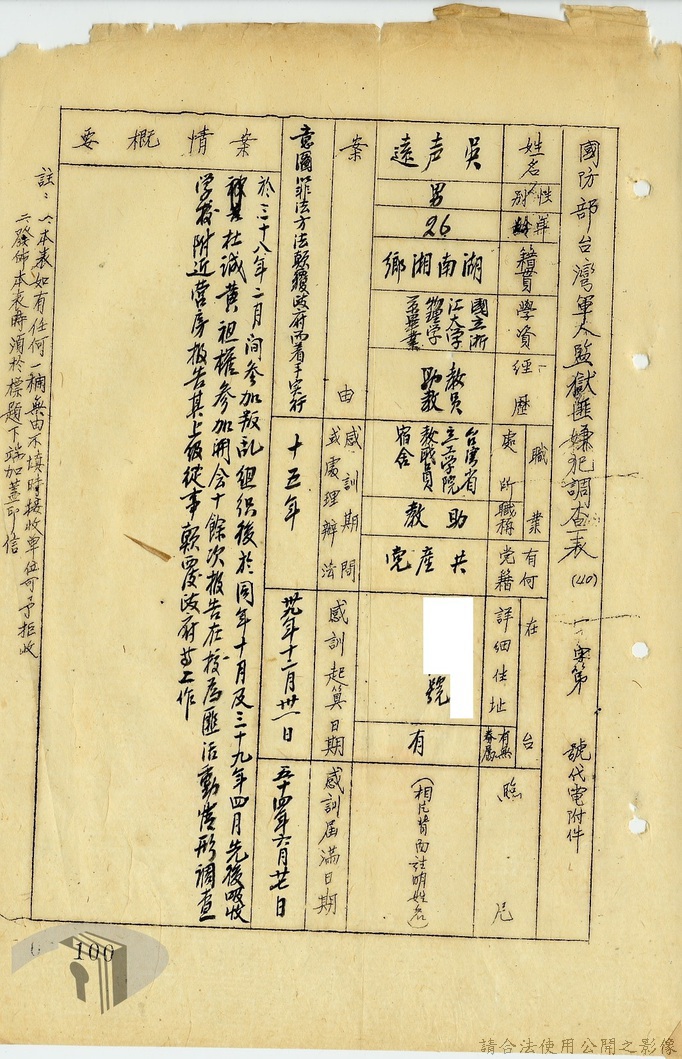 國防部台灣軍人監獄匪嫌犯調查表(40) 字第 號代電附件
姓名
吳声遠
性別
男
年齡
26
籍貫
湖南湘鄉
學資
國立浙
江大学
物理学
系畢業
經歷
教員
助教
職業
處所
台灣省
立工学院
教職員
宿舍
職稱
助教
有何党籍
共産党
在台
詳細住址
號
有無眷屬
有
照片
(相片背面註明姓名)
案由
意圖以非法方法顛覆政府而着手实行
感訓期間
或處理辦法
十五年
感訓起算日期
卅九年十二月卅一日
感訓屆滿日期
五十四年六月廿七日
案情概要
於三十八年二月間参加叛乱組織後於同年十月及三十九年四月先後吸收
杜誠黄祖權参加開会十餘次報告在校為匪活動情形調查
学校附近营房报告其上級從事顛覆政府等工作
註:一、本表如有任何一欄無由不填時接收单位可予拒收
二、發佈本表時須於標題下端加蓋印信
100
請合法使用公開之影像